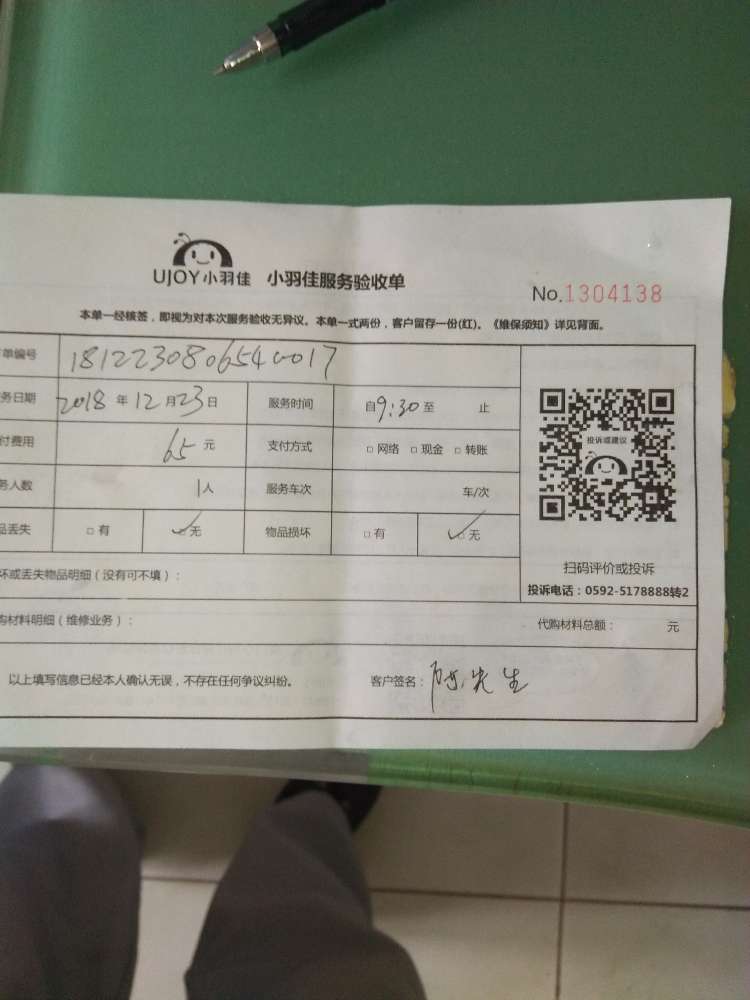 UJOY小羽佳 小羽佳服务验收单
No.1304138
本单一经核签，即视为对本次服务验收无异议。本单一式两份，客户留存一份(红)。《维保须知》详见背面。
单编号 1812230806540017
务日期 2018年12月23日 服务时间 自9:30至 止
付费用 65元 支付方式 □网络 □现金 □转账
务人数 1人 服务车次 车/次
品丢失 □有 ✓□无 物品损坏 □有 ✓□无
投诉或建议
扫码评价或投诉
投诉电话：0592-5178888转2
坏或丢失物品明细（没有可不填）：
购材料明细（维修业务）： 代购材料总额： 元
以上填写信息已经本人确认无误，不存在任何争议纠纷。 客户签名：陈先生